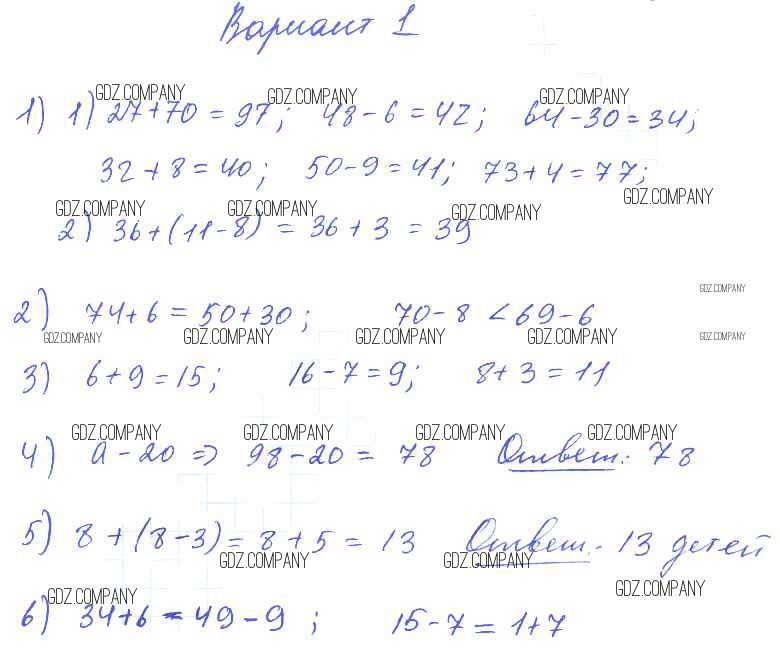 Вариант 1
GDZ.COMPANY GDZ.COMPANY GDZ.COMPANY
1) 1) 27+70 = 97; 48-6 = 42; 64-30 = 34;
32 + 8 = 40; 50-9 = 41; 73+4 = 77;
GDZ.COMPANY GDZ.COMPANY GDZ.COMPANY GDZ.COMPANY
2) 36+(11-8) = 36 + 3 = 39
GDZ.COMPANY
2) 74+6 = 50+30; 70-8 < 69-6
GDZ.COMPANY GDZ.COMPANY GDZ.COMPANY GDZ.COMPANY GDZ.COMPANY
3) 6+9 = 15; 16-7 = 9; 8+3 = 11
GDZ.COMPANY GDZ.COMPANY GDZ.COMPANY GDZ.COMPANY
4) a-20 => 98-20 = 78 Ответ: 78
5) 8 + (8-3) = 8 + 5 = 13 Ответ: 13 детей
GDZ.COMPANY GDZ.COMPANY
GDZ.COMPANY GDZ.COMPANY
6) 34+6 = 49-9; 15-7 = 1+7